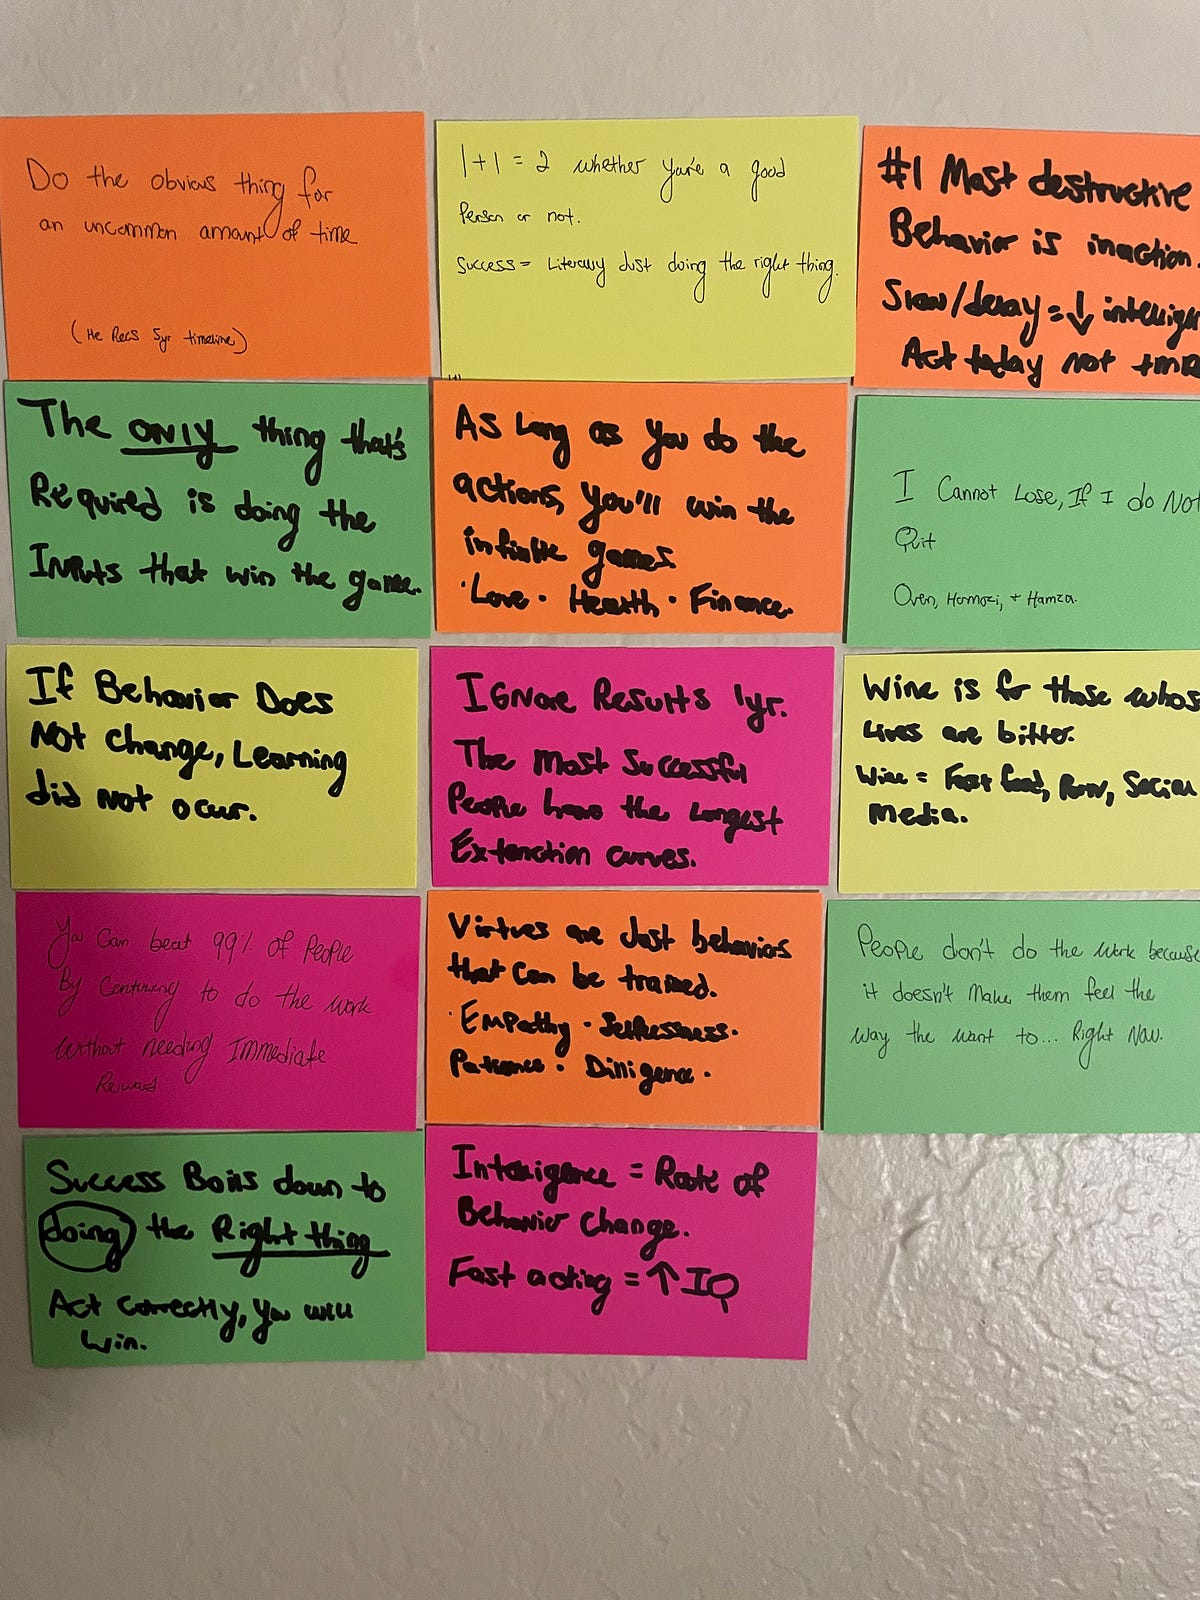 Do the obvious thing for
an uncommon amount of time
(He Recs 5yr timeline)
1+1 = 2 whether you're a good
Person or not.
Success = Literally Just doing the right thing.
#1 Most destructive
Behavior is inaction.
Slow/delay = ↓
Act today not
The ONLY thing that's
Required is doing the
Inputs that win the game.
As Long as you do the
actions, you'll win the
infinite games
· Love · Health · Finance.
I Cannot Lose, If I do Not
Quit
Oven, Hormozi, + Hamza.
If Behavior Does
Not change, Learning
did not occur.
IGNORE Results 1yr.
The most Successful
People have the Longest
Extinction curves.
Wine is for those whos
Lives are bitter.
Wine = Fast food, Porn, Social
Media.
You Can beat 99% of People
By Continuing to do the work
without needing Immediate
Reward.
Virtues are Just behaviors
that can be trained.
· Empathy · Selflessness ·
Patience · Dilligence ·
People don't do the work because
it doesn't make them feel the
way the want to... Right Now.
Success Boils down to
doing the Right thing
Act correctly, you will
win.
Intelligence = Rate of
Behavior Change.
Fast acting = ↑ IQ